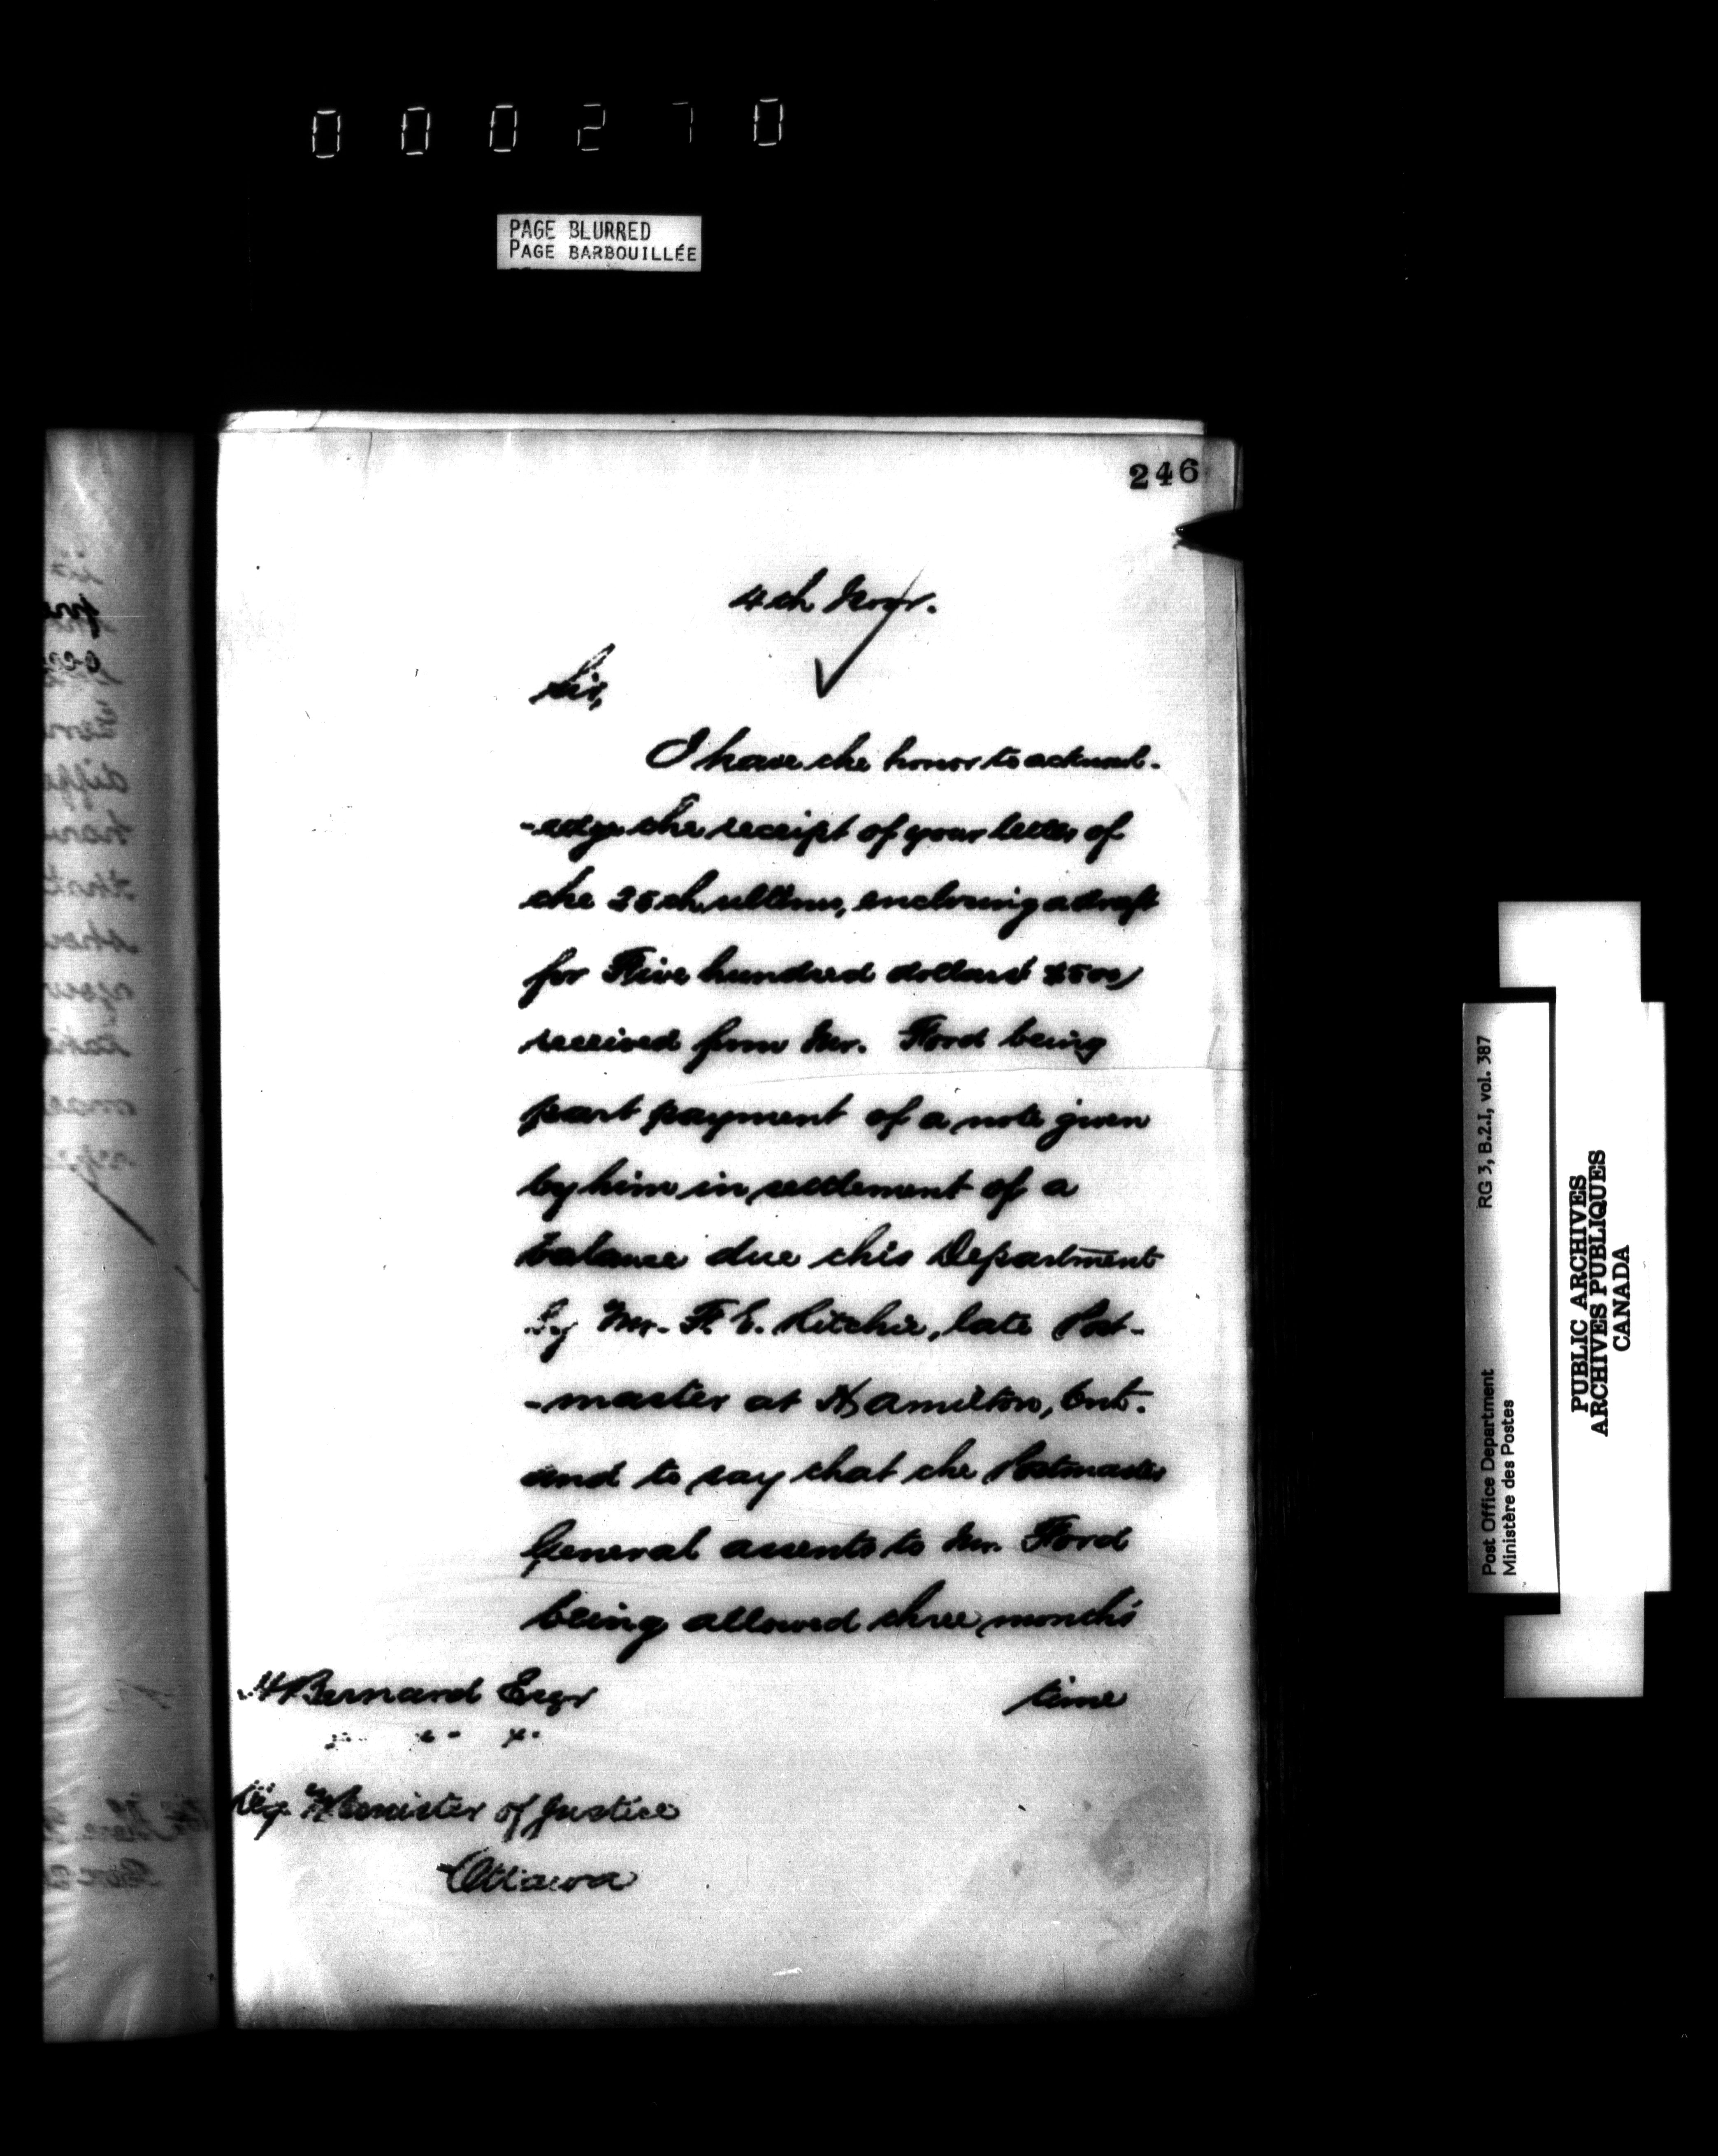 000270
PAGE BLURRED
PAGE BARBOUILLÉE
246
4th Novr.
Sir,
I have the honor to acknowl-
-edge the receipt of your letter of
the 25th ultimo, enclosing a draft
for Five hundred dollars $500)
received from Mr. Ford being
part payment of a note given
by him in settlement of a
balance due this Department
by Mr. F. E. Ritchie, late Post-
-master at Hamilton, Ont.
and to say that the Postmaster
General assents to Mr. Ford
being allowed three months'
time
H Bernard Esqr
Dep. Minister of Justice
Ottawa
RG 3, B.2.I, vol. 387
Post Office Department
Ministère des Postes
PUBLIC ARCHIVES
ARCHIVES PUBLIQUES
CANADA